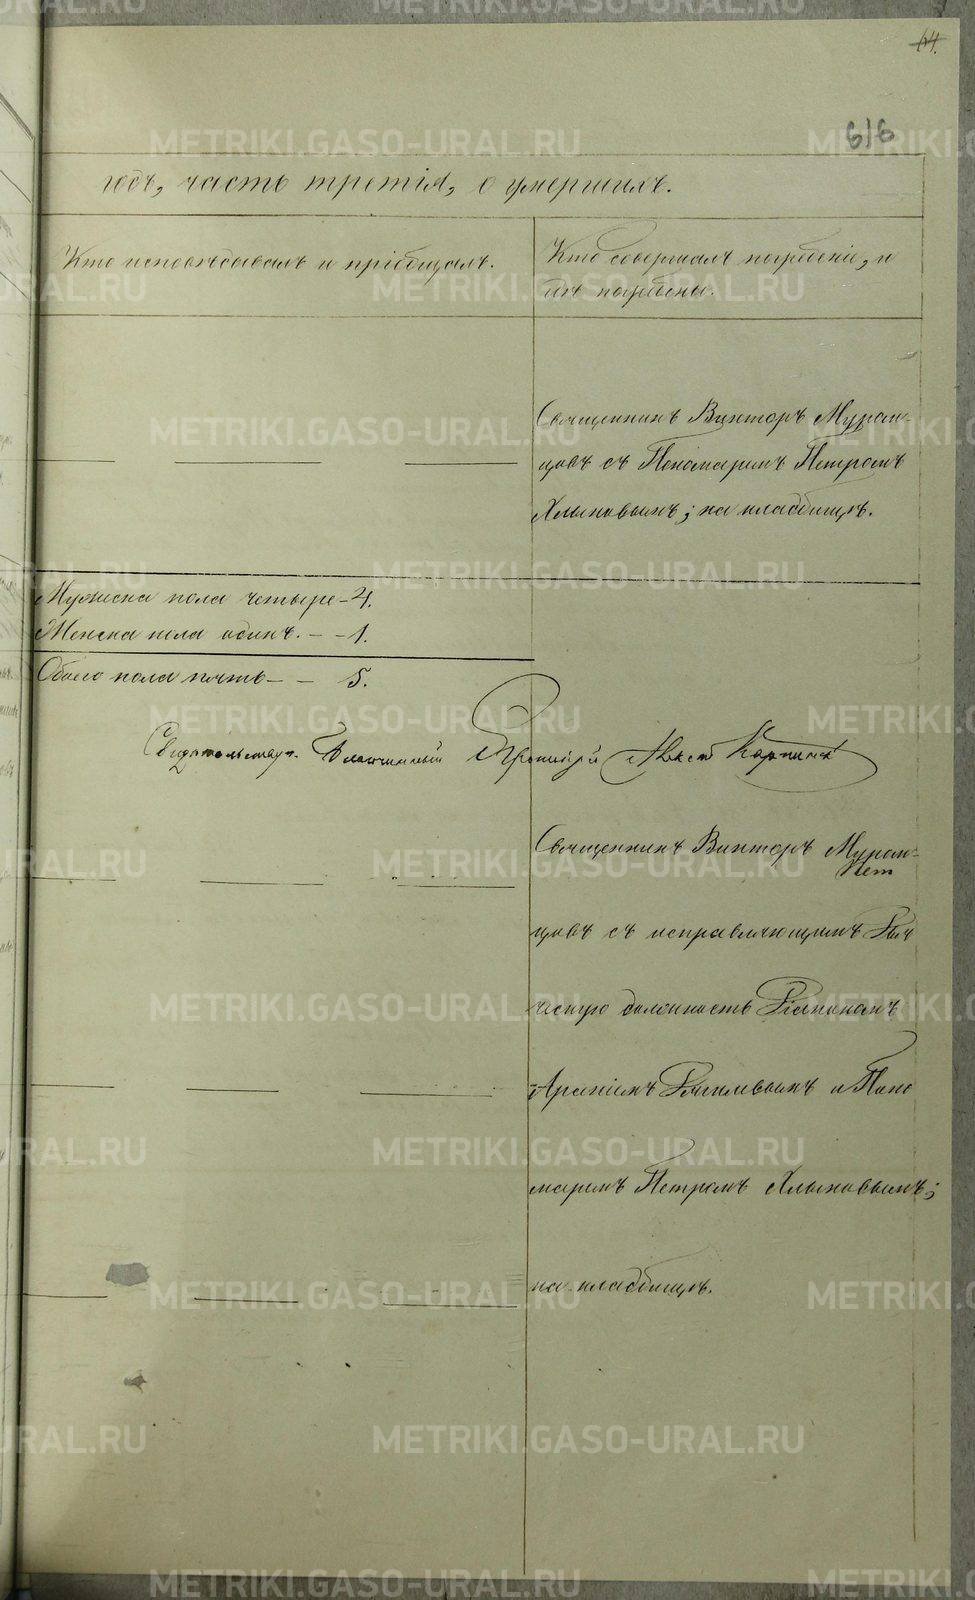 64.
616
годъ, часть третія, о умершихъ.
Кто исповѣдывалъ и пріобщалъ.
Кто совершалъ погребеніе, и
гдѣ погребены.
Священникъ Викторъ Муром-
цовъ съ Пономаремъ Петромъ
Хлыновымъ; на кладбищѣ.
Мужеска пола четыре - 4.
Женска пола одинъ. - - 1.
Обоего пола пять - - 5.
Свидѣтельствуетъ Благочинный Протоіерей
Священникъ Викторъ Муром-
цовъ съ исправляющимъ
ческую должность Діакономъ
Арсеніемъ и Поно
маремъ Петромъ Хлыновымъ;
на кладбищѣ.
METRIKI.GASO-URAL.RU